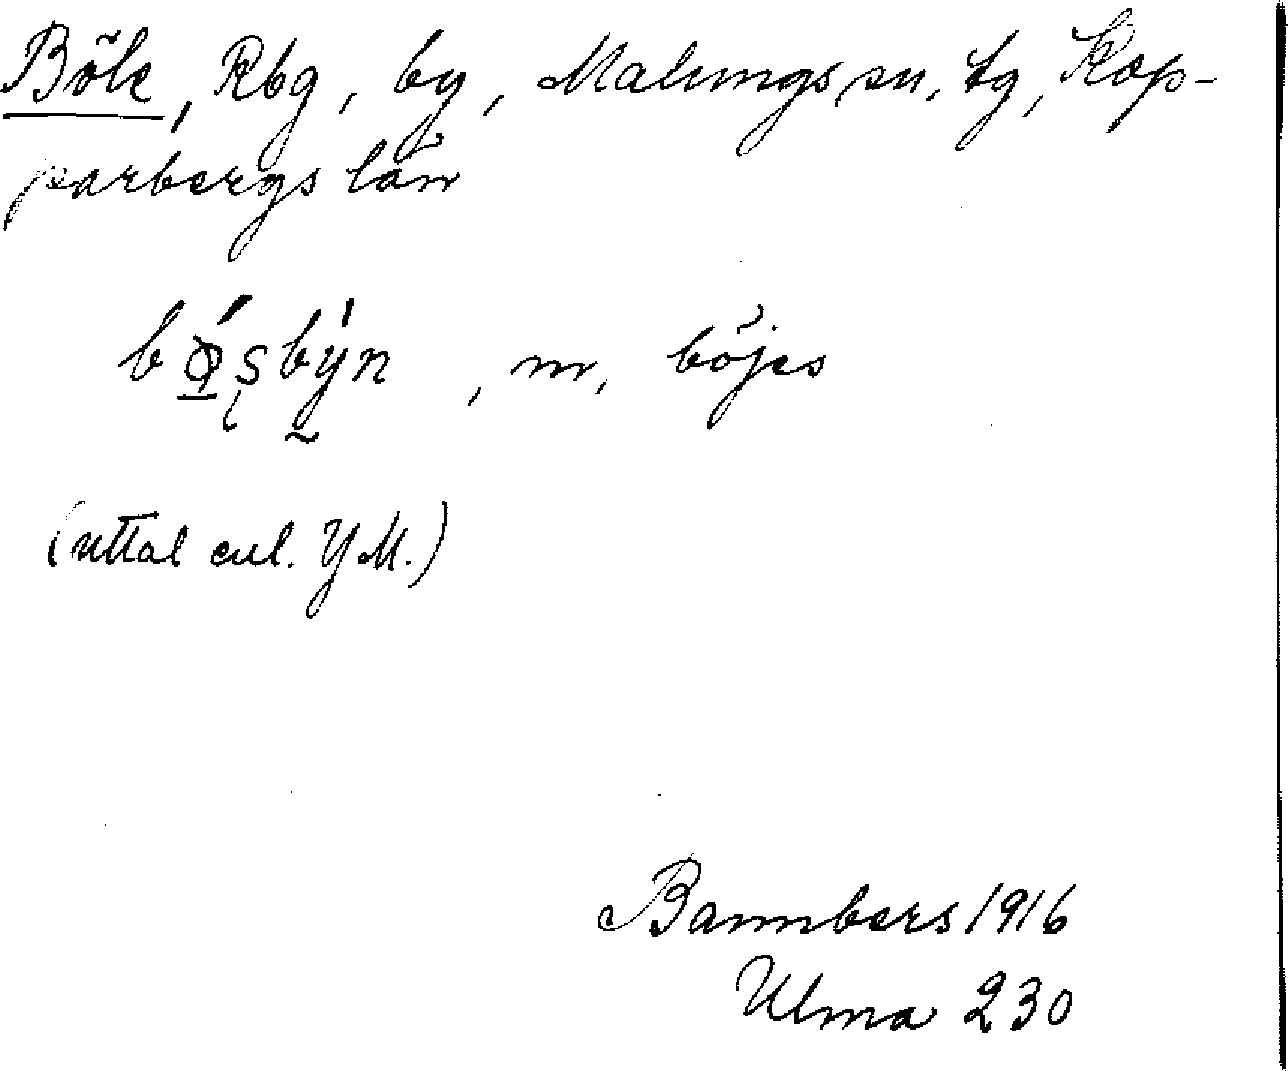 Böle, Rbg, by, Malungs sn, tg, Kop-
parbergs län
bǿ̱s̨bý̰n, m, böjes
(uttal enl. YM.)
Bannbers 1916
Ulma 230